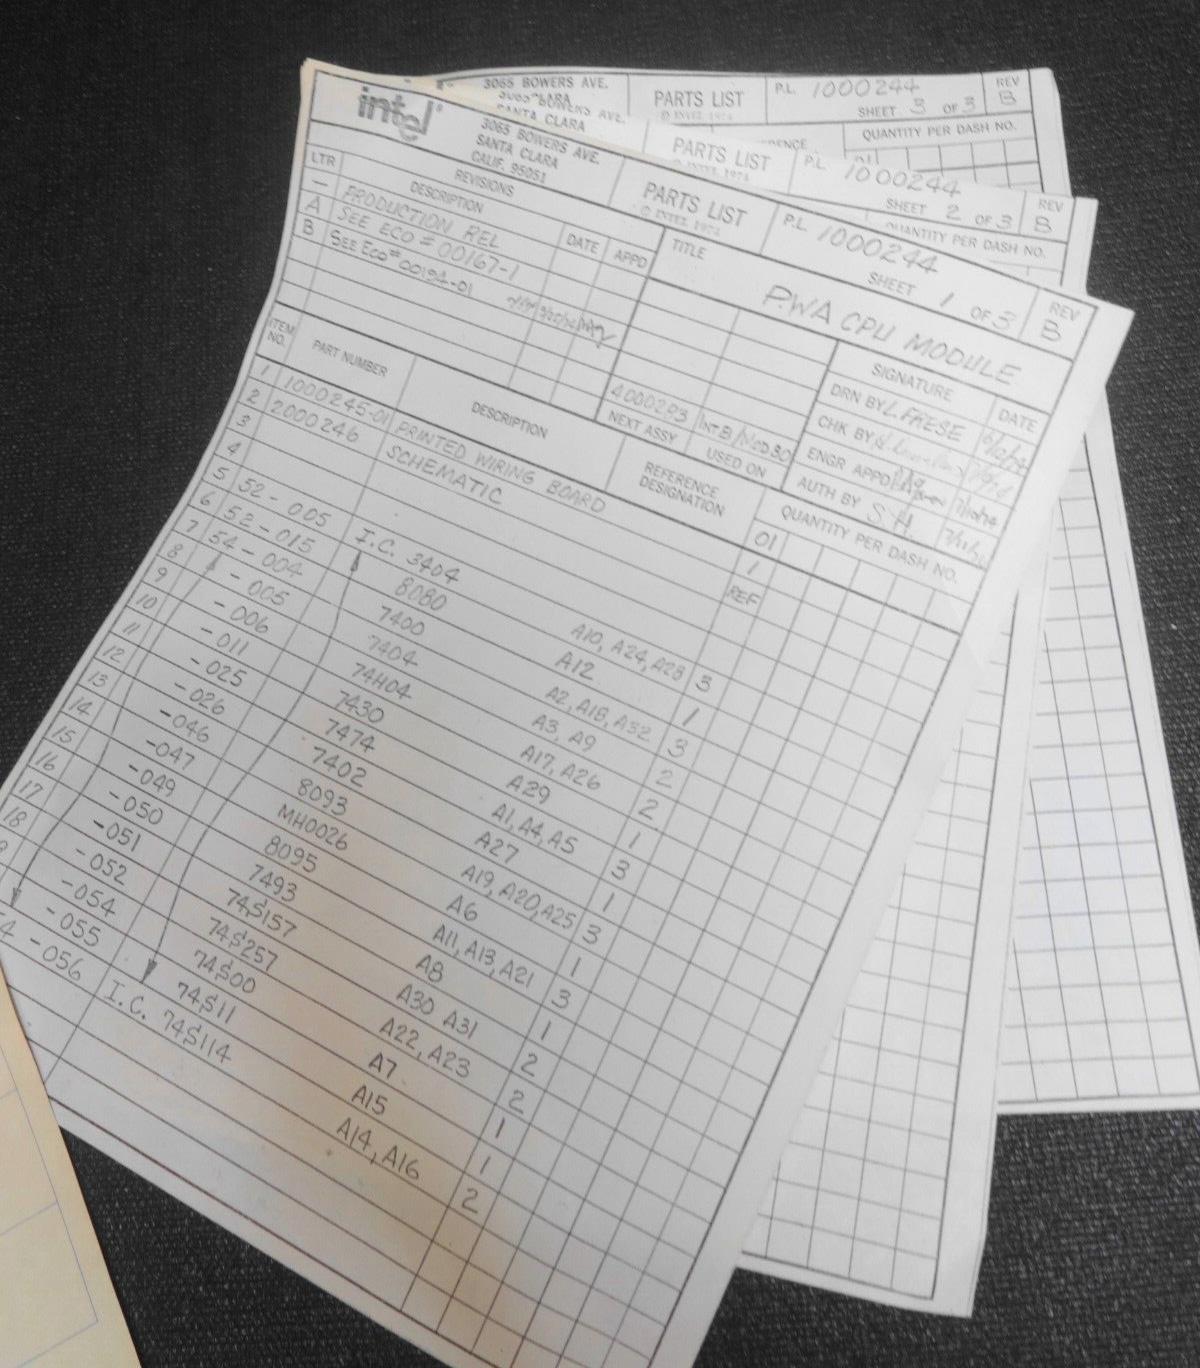 3065 BOWERS AVE.
SANTA CLARA
PARTS LIST
© INTEL 1974
P.L. 1000244
SHEET 3 OF 3
REV
B
QUANTITY PER DASH NO.
01
PARTS LIST
P.L. 1000244
SHEET 2 OF 3
REV
B
QUANTITY PER DASH NO.
intel®
3065 BOWERS AVE.
SANTA CLARA
CALIF. 95051
PARTS LIST
© INTEL 1974
P.L. 1000244
SHEET 1 OF 3
REV
B
REVISIONS
LTR DESCRIPTION DATE APPD
— PRODUCTION REL
A SEE ECO # 00167-1
B SEE ECO # 00194-01
TITLE
P.W.A CPU MODULE
SIGNATURE DATE
DRN BY L FRESE
CHK BY
ENGR APPD
AUTH BY S.H.
NEXT ASSY USED ON
ITEM NO. PART NUMBER DESCRIPTION REFERENCE DESIGNATION QUANTITY PER DASH NO.
01
1 1000245-01 PRINTED WIRING BOARD 1
2 2000246 SCHEMATIC REF
3
4 52-005 I.C. 3404 A10, A24, A28 3
5 52-015 8080 A12 1
6 54-004 7400 A2, A18, A32 3
7 -005 7404 A3, A9 2
8 -006 74H04 A17, A26 2
9 -011 7430 A29 1
10 -025 7474 A1, A4, A5 3
11 -026 7402 A27 1
12 -046 8093 A19, A20, A25 3
13 -047 MH0026 A6 1
14 -049 8095 A11, A13, A21 3
15 -050 7493 A8 1
16 -051 74S157 A30 A31 2
17 -052 74S257 A22, A23 2
18 -054 74S00 A7 1
-055 74S11 A15 1
-056 I.C. 74S114 A14, A16 2